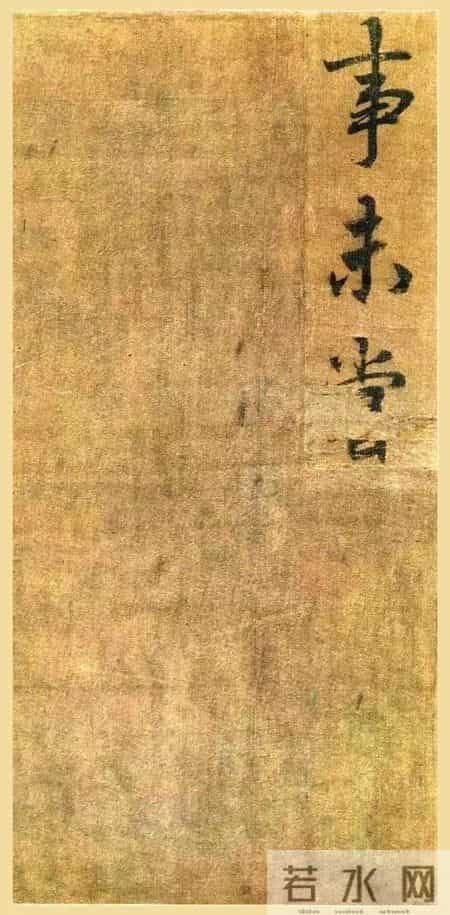 事未嘗
若水网